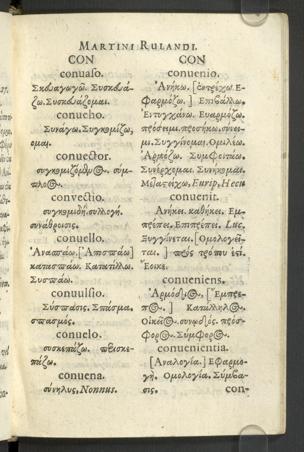 MARTINI RULANDI.
CON
conuaso.
Σκευαγωγῶ. Συσκευά-
ζω. Συσκευάζομαι.
conueho.
Συνάγω. Συγκομίζω,
ομαι.
conuector.
συγκομιζόμενος. σύμ-
πλοος.
conuectio.
συγκομιδή. συλλογή.
συνάθροισις.
conuello.
Ἀνασπάω. [Ἀποσπάω]
κατασπάω. Κατατίλλω.
Συσπάω.
conuulsio.
Σύσπασις. Σπάσμα.
σπασμός.
conuelo.
συσκεπάζω. περισκε-
πάζω.
conuena.
σύνηλυς, Nonnus.
CON
conuenio.
Ἀνήκω. [ἐντρέχω. Ε-
φαρμόζω.] Επιβάλλω.
Εντυγχάνω. Εναρμόζω.
πρόσειμι. προσήκω. σύνει-
μι. Συγγίνομαι. Ομιλέω.
Αρμόζω. Συμφοιτάω.
Συνέρχομαι. Συνήκομαι.
Μετατρέχω, Eurip. Hecu
conuenit.
Ανήκει. καθήκει. Εμ-
πρέπει. Επιπρέπει. Luc.
Συγγίνεται. [Ομολογεῖ-
ται.] πρὸς τρόπου ἐστί.
Εοικε.
conueniens.
Ἁρμόδιος. [Εμπρε-
πὴς.] Κατάλληλος.
Οἰκεῖος. συνῳδός. πρόσ-
φορος. Σύμφορος.
conuenientia.
[Αναλογία.] Εφαρμο-
γή. Ομολογία. Σύμβα-
σις.
con-